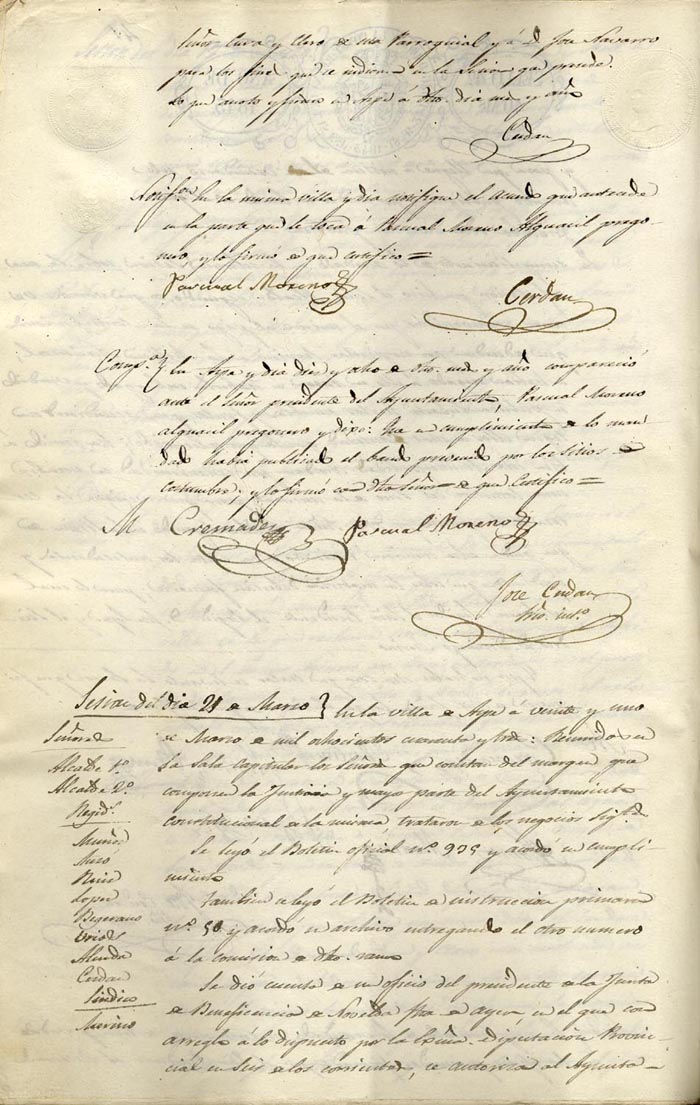 Señor Cura y Clero de esta Parroquial y á D. Jose Navarro
para los fines que se indican en la Sesion que precede.
Lo que anoto y firmo en Aspe á dho. dia mes y año
Cerdan
Notifon. En la misma villa y dia notifiqué el Acuerdo que antecede
en la parte que le toca á Pascual Moreno Alguacil prego-
nero, y lo firmó de que certifico =
Pascual Moreno
Cerdan
Compa. } En Aspe y dia diez y ocho de dho. mes y año compareció
ante el Señor presidente del Ayuntamiento, Pascual Moreno
alguacil pregonero y dixo: Que en cumplimiento de lo man
dado habia publicado el bando prevenido por los sitios de
costumbre, y lo firmó con dho Señor de que Certifico =
M Cremades
Pascual Moreno
Jose Cerdan
Srio. int.o
Sesion del dia 21 de Marzo } En la villa de Aspe á veinte y uno
de Marzo de mil ochocientos cuarenta y tres: Reunidos en
la Sala capitular los Señores que constan del margen que
componen la Justicia y mayor parte del Ayuntamiento
constitucional de la misma, trataron de los negocios sigtes.
Señores
Alcalde 1.o
Alcalde 2.o
Regids.
Muñoz
Lopez
Bejerano
Almoda
Cerdan
Sindico
Merino
Se leyó el Boletin oficial n.o 935 y acordó su cumpli-
miento
Tambien se leyó el Boletin de instruccion primaria
n.o 50 y acordó su archivo entregando el otro numero
á la comision de dho. ramo
Se dió cuenta de un oficio del presidente de la Junta
de Beneficencia de Novelda fha. de ayer en el que con
arreglo á lo dispuesto por la Exma. Diputacion Provin-
cial en seis de los corrientes, se autoriza al Ayunta-